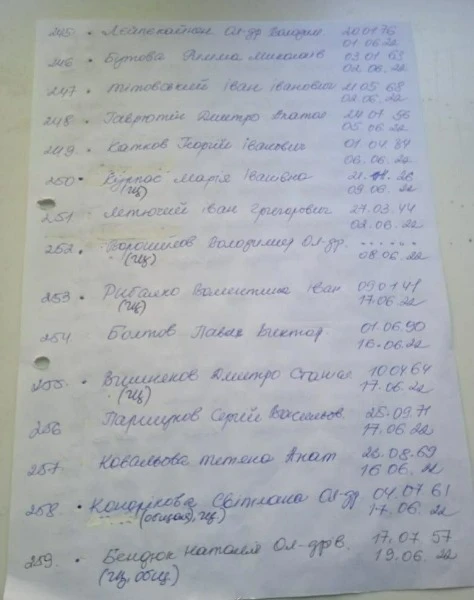 245. • Ол-др Володим. 20.01.76
01.06.22
246 • Бутова Римма Миколаїв 03.01.63
02.06.22
247 • Тітовський Іван Іванович 21.05.68
02.06.22
248 • Гаврютін Дмитро Анатол 24.01.56
05.06.22
249 • Катков Георгій Іванович 01.04.84
06.06.22
250 • Курпас Марія Іванівна 21.11.26
(гц) 09.06.22
251 • Летючий Іван Григорович 27.03.44
02.06.22
252 • Порошилов Володимир Ол-др. ......
(гц) 08.06.22
253 • Рибалко Валентина Іван 09.01.41
(гц) 17.06.22
254 • Болтов Павло Віктор. 01.06.90
16.06.22
255. • Вишняков Дмитро Станісл. 10.04.64
(гц) 17.06.22
256 • Сергій Васильов. 25.09.71
17.06.22
257 • Ковальова Тетяна Анат 26.08.69
16.06.22
258 • Світлана Ол-др 04.07.61
(общая), гц. 17.06.22
259. • Бендюк Наталія Ол-дрів. 17.07.57
(гц, общ) 19.06.22